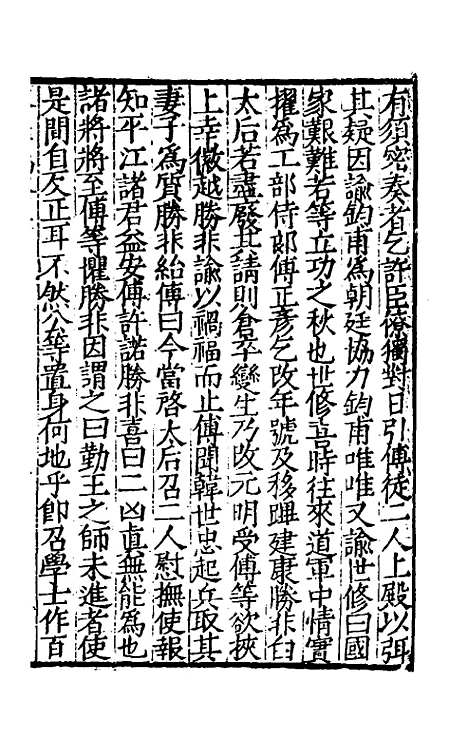 有須密奏者乞許臣僚獨對日引傅徒二人上殿以弭
其疑因諭鈞甫爲朝廷協力鈞甫唯唯又諭世修曰國
家艱難若等立功之秋也世修喜時往來道軍中情實
擢爲工部侍郎傅正彥乞改年號及移蹕建康勝非白
太后若盡廢其請則倉卒變生乃改元明受傅等欲挾
上幸徽越勝非諭以禍福而止傅聞韓世忠起兵取其
妻子爲質勝非紿傅曰今當啓太后召二人慰撫使報
知平江諸君益安傅許諾勝非喜曰二凶真無能爲也
諸將將至傅等懼勝非因謂之曰勤王之師未進者使
是間自反正耳不然公等置身何地乎卽召學士作百